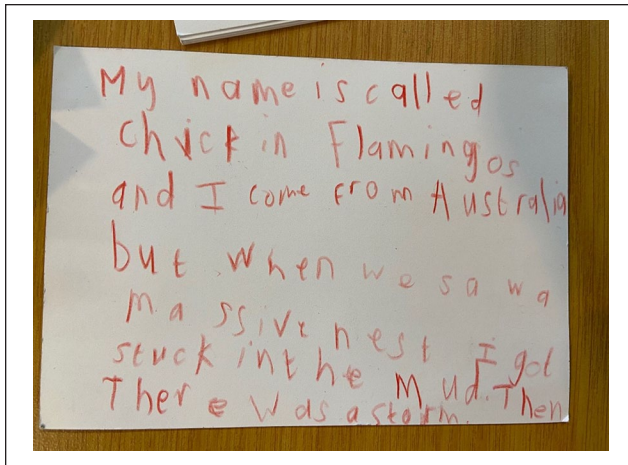 My name is called
chick in Flamingos
and I come from Australia
but when we saw a
massive nest I got
stuck in the Mud. Then
There was a storm.